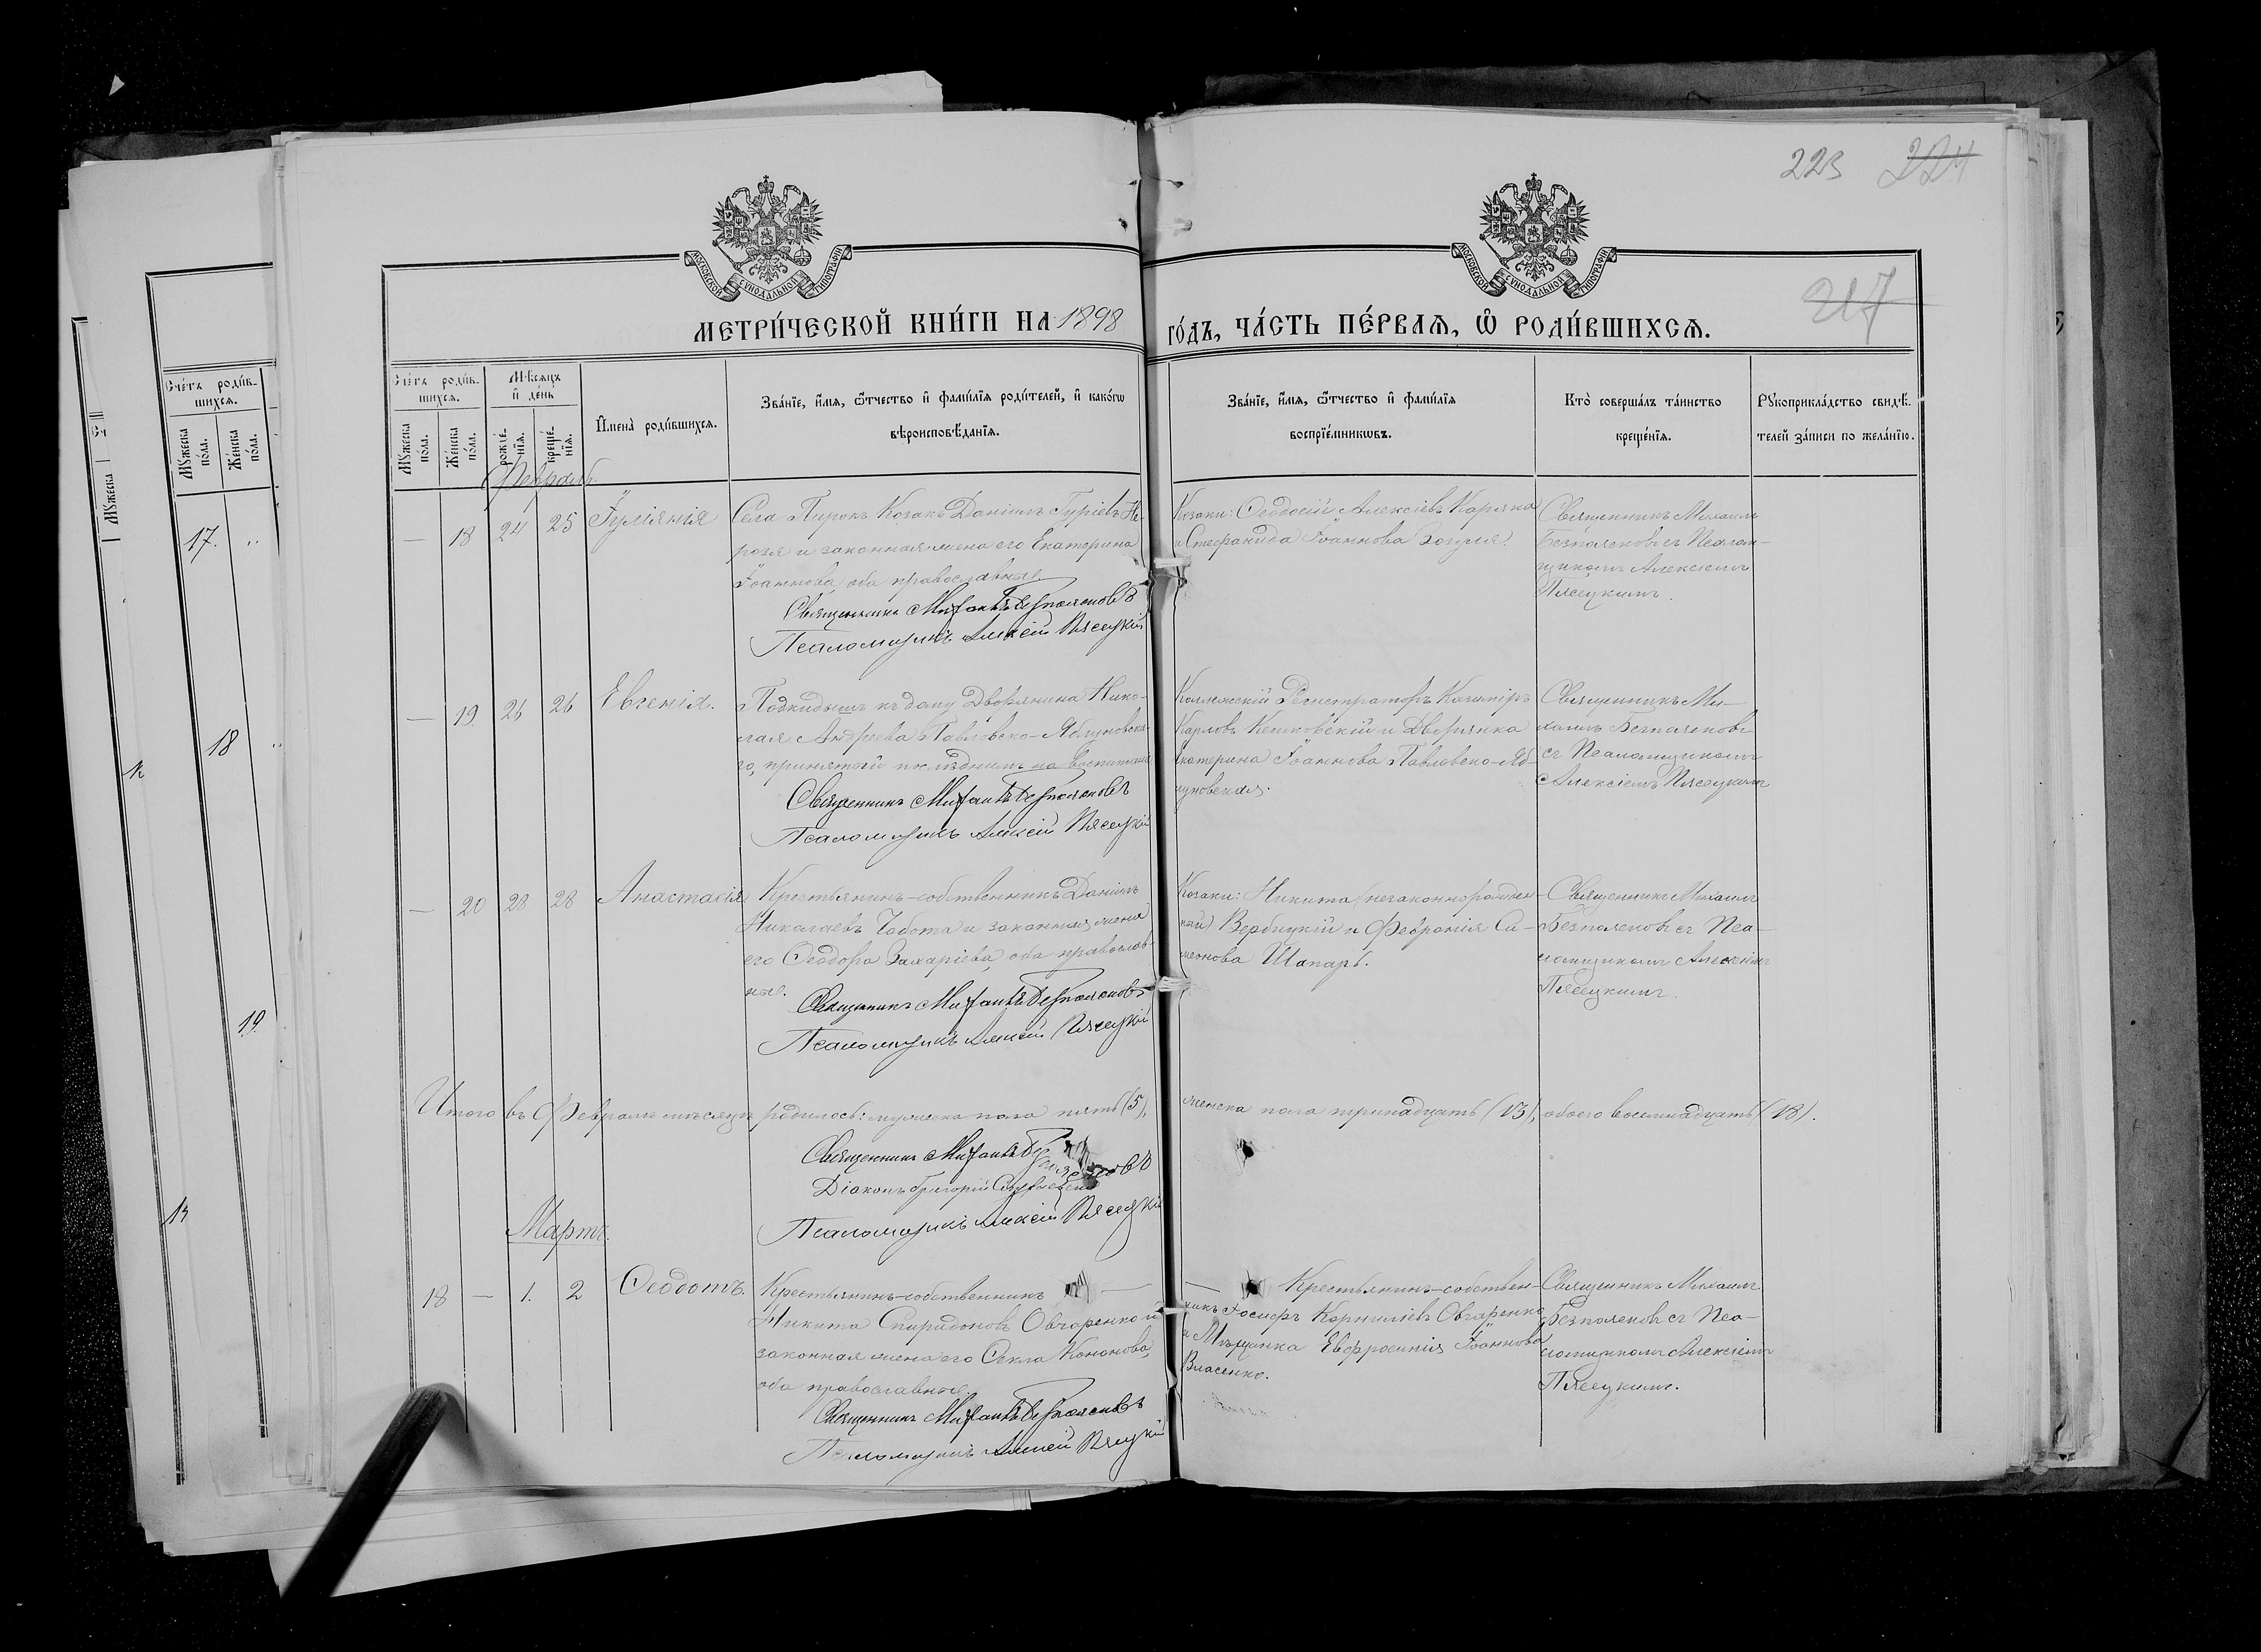 223 224
217
МОСКОВСКОЙ СѴНОДАЛЬНОЙ ТИПОГРАФІИ
МОСКОВСКОЙ СѴНОДАЛЬНОЙ ТИПОГРАФІИ
МЕТРИ́ЧЕСКОЙ КНИ́ГИ НА 1898 ГО́ДЪ, ЧА́СТЬ ПЕ́РВАЯ, Ѿ РОДИ́ВШИХСЯ.
Сче́тъ роди́в-
шихся.
Му́жеска
по́ла.
Же́нска
по́ла.
Мѣсяцъ
и де́нь
рожде́-
нія.
креще́-
нія.
Имена̀ роди́вшихся.
Зва́ніе, и́мя, о́тчество и фами́лія роди́телей, и како́гѡ
вѣроисповѣ́данія.
Зва́ніе, и́мя, о́тчество и фами́лія
воспріе́мниковъ.
Кто̀ соверша́лъ та́инство
креще́нія.
Рукоприкла́дство свидѣ́-
телей за́писи по жела́нію.
Февраль.
— 18 24 25 Іуліянія
Села Пирокъ Козакъ Даніилъ Гуріевъ Не-
розя и законная жена его Екатерина
Іоаннова, оба православные.
Священникъ Михаилъ Безпоясковъ
Псаломщикъ Алексій Пясецкій
Козаки: Ѳеодосій Алексіевъ Каряка
и Стефанида Іоаннова
Священникъ Михаилъ
Безпоясковъ съ Псалом-
щикомъ Алексіемъ
Пясецкимъ.
— 19 26 26 Евгенія.
Подкидышъ къ дому Дворянина Нико-
лая Андреева Павловско-Яблуновска-
го, принятый послѣднимъ на воспитаніе
Священникъ Михаилъ Безпоясковъ
Псаломщикъ Алексій Пясецкій
Коллежскій Регистраторъ Казиміръ
Карловъ Кешковскій и Дворянка
Екатерина Іоаннова Павловско-Яб-
луновская.
Священникъ Ми-
хаилъ Безпоясковъ
съ Псаломщикомъ
Алексіемъ Пясецкимъ
— 20 28 28 Анастасія
Крестьянинъ-собственникъ Даніилъ
Николаевъ Чобота и законная жена
его Ѳеодора Захаріева, оба православ-
ные.
Священникъ Михаилъ Безпоясковъ
Псаломщикъ Алексій Пясецкій
Козаки: Никита (незаконнорожден-
ный) Вербицкій и Февронія Си-
меонова Шапаръ.
Священникъ Михаилъ
Безпоясковъ съ Пса-
ломщикомъ Алексіемъ
Пясецкимъ.
Итого въ Февралѣ мѣсяцѣ родилось: мужеска пола пять (5), женска пола тринадцать (13), обоего восемнадцать (18).
Священникъ Михаилъ Безпоясковъ
Діаконъ Григорій
Псаломщикъ Алексій Пясецкій
Мартъ.
18 — 1. 2 Ѳеодотъ.
Крестьянинъ-собственникъ —
Никита Спиридоновъ Овчаренко и
законная жена его Ѳекла Кононова,
оба православные.
Священникъ Михаилъ Безпоясковъ
Псаломщикъ Алексій Пясецкій
— Крестьянинъ-собствен-
никъ Іосифъ Корниліевъ Овчаренко
и Мѣщанка Евфросинія Іоаннова
Власенко.
Священникъ Михаилъ
Безпоясковъ съ Пса-
ломщикомъ Алексіемъ
Пясецкимъ.
Сче́тъ роди́в-
шихся.
Му́жеска
по́ла.
Же́нска
по́ла.
17.
18
19
Му́жеска